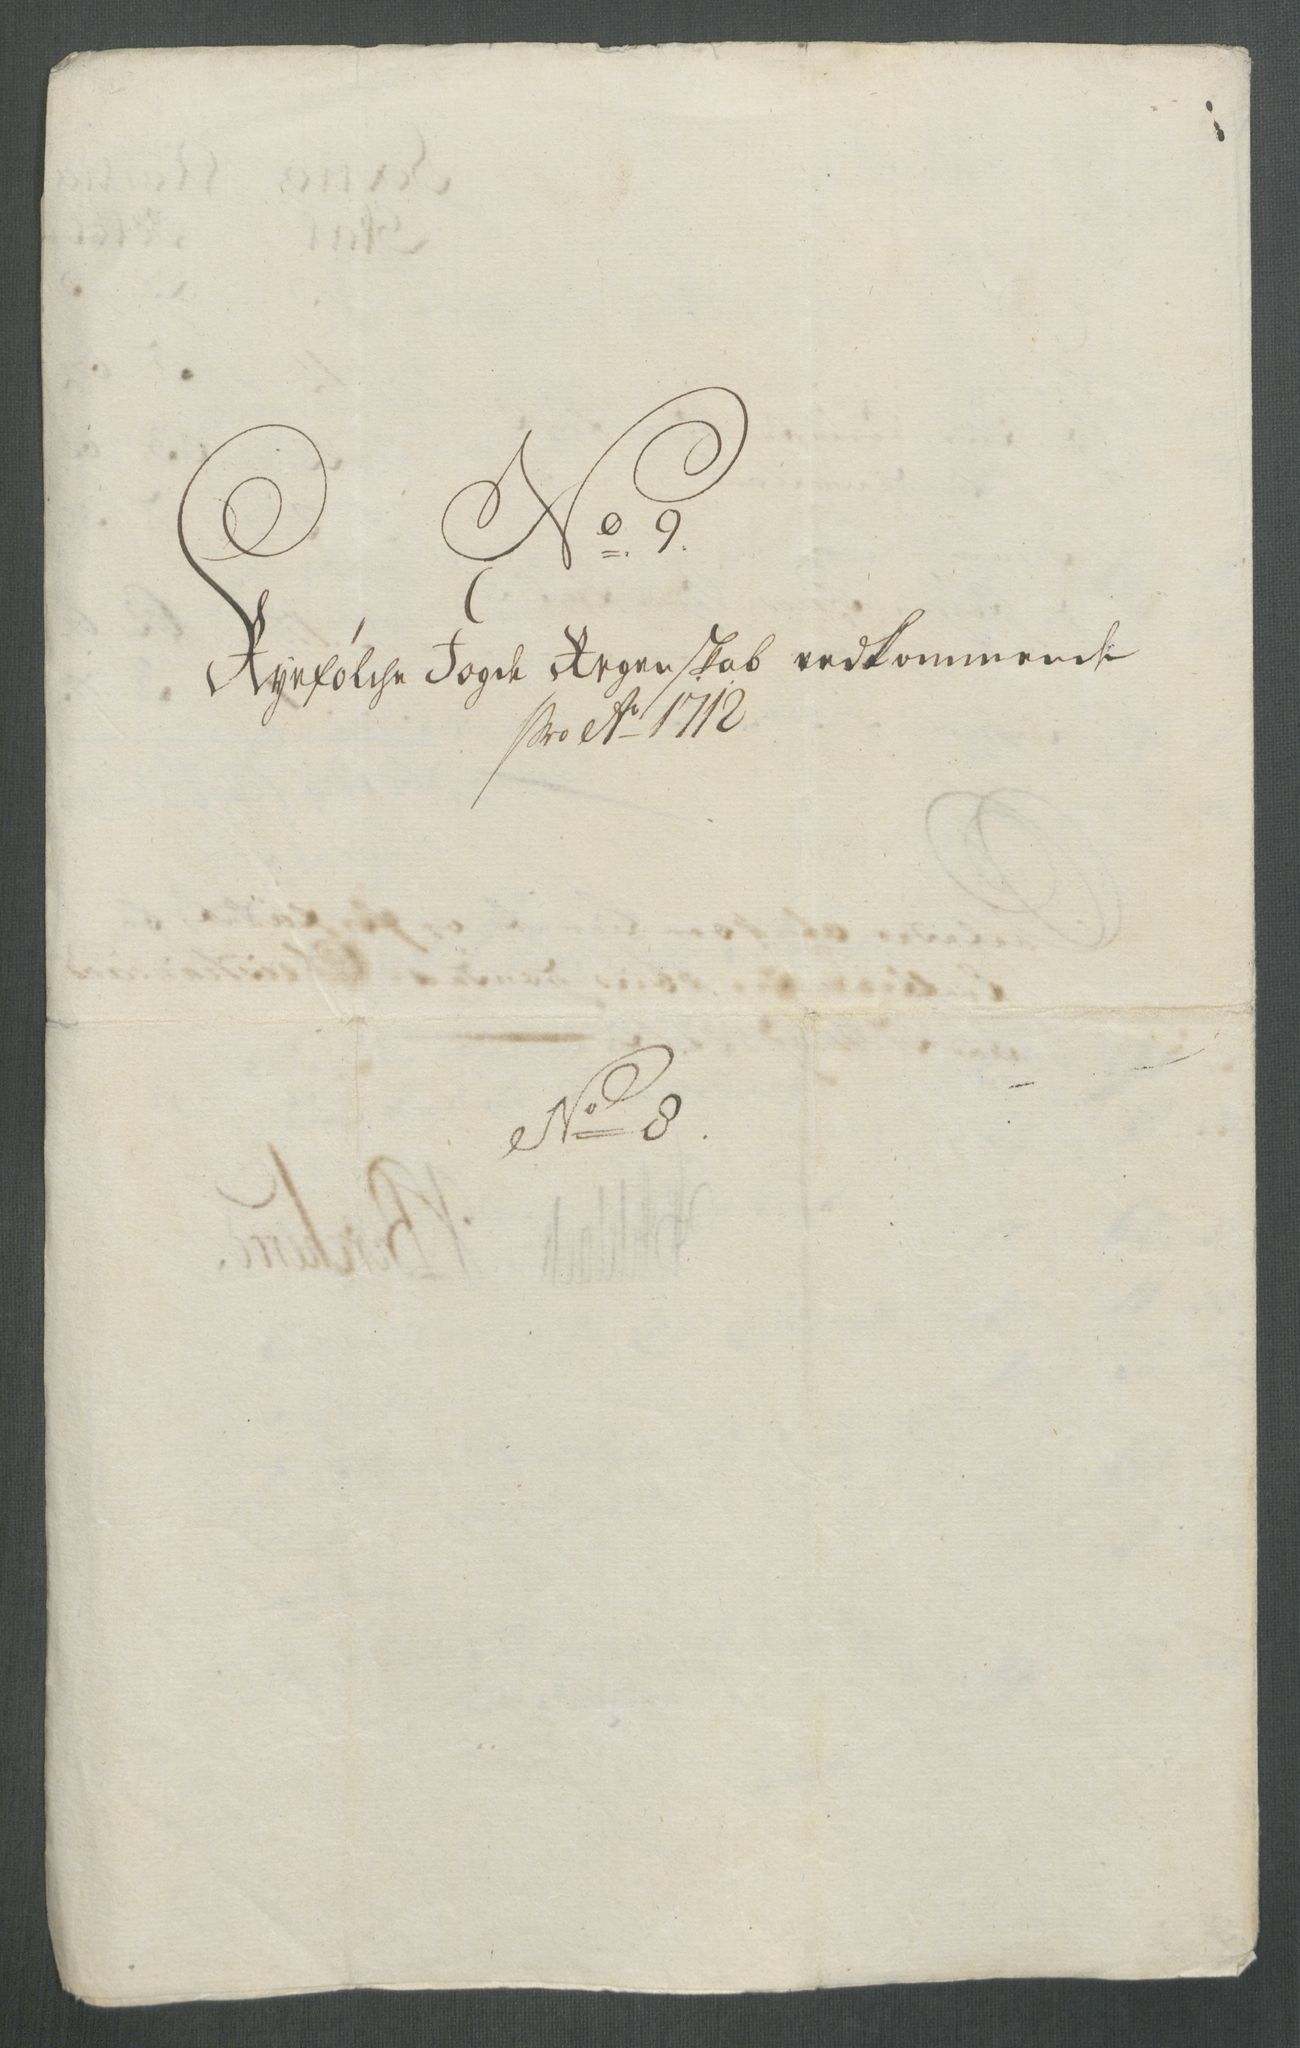 No 9.
Ryefölche Fogde Regenskab vedkommende
pro Ao 1712
No 8.